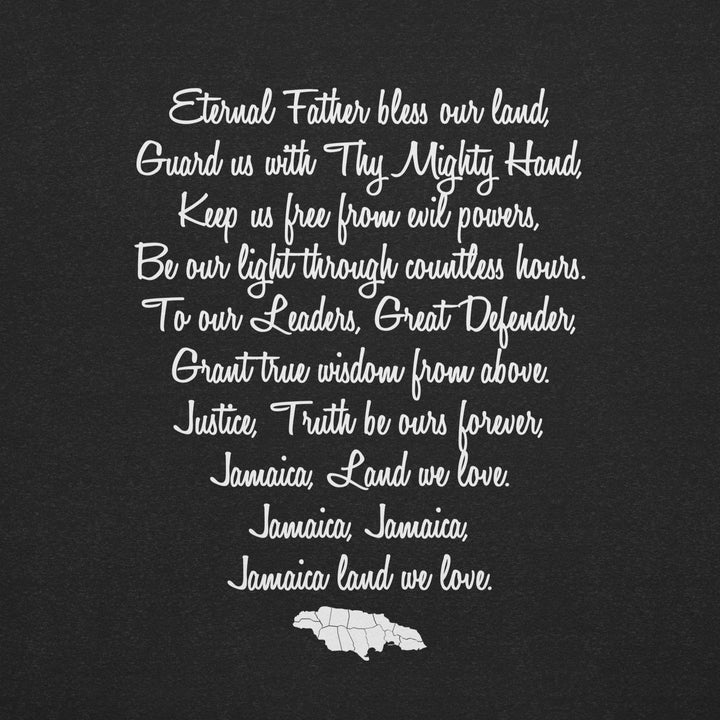 Eternal Father bless our land,
Guard us with Thy Mighty Hand,
Keep us free from evil powers,
Be our light through countless hours.
To our Leaders, Great Defender,
Grant true wisdom from above.
Justice, Truth be ours forever,
Jamaica, Land we love.
Jamaica, Jamaica,
Jamaica land we love.